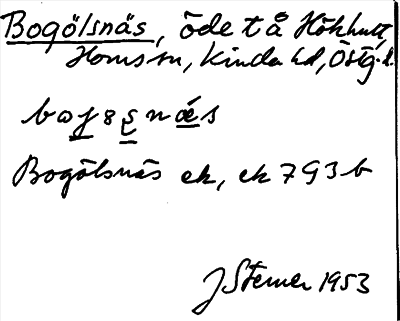 Bogölsnäs, öde t å Hökhult,
Horns sn, Kinda hd, Östg. l.
Bogölsnäs ek, ek 7 G 3 b
J Sterner 1953